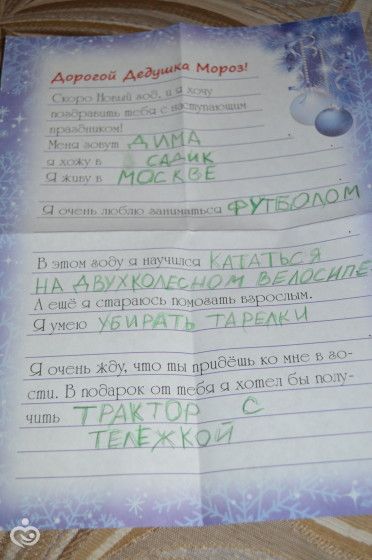 Дорогой Дедушка Мороз!
Скоро Новый год, и я хочу
поздравить тебя с наступающим
праздником!
Меня зовут ДИМА
я хожу в САДИК
Я живу в МОСКВЕ
Я очень люблю заниматься ФУТБОЛОМ
В этом году я научился КАТАТЬСЯ
НА ДВУХКОЛЕСНОМ ВЕЛОСИПЕ-
А ещё я стараюсь помогать взрослым.
Я умею УБИРАТЬ ТАРЕЛКИ
Я очень жду, что ты придёшь ко мне в го-
сти. В подарок от тебя я хотел бы полу-
чить ТРАКТОР С
ТЕЛЕЖКОЙ